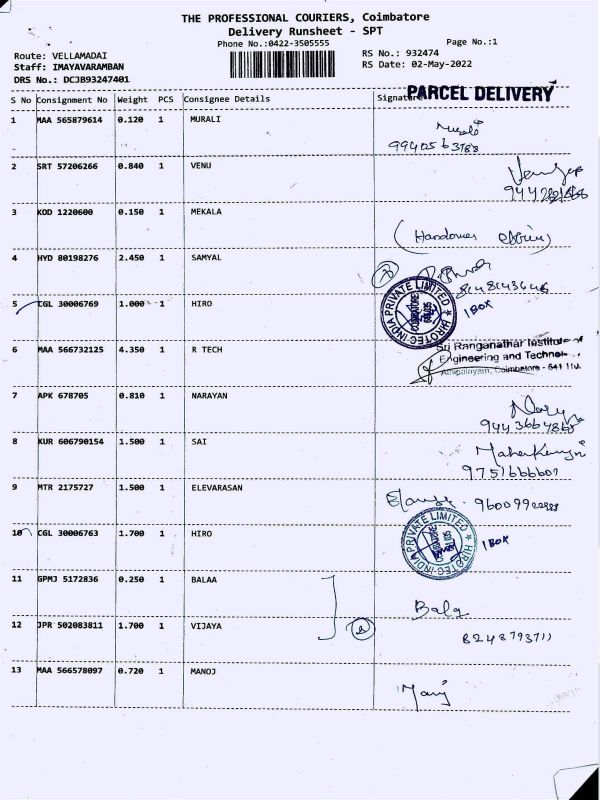 THE PROFESSIONAL COURIERS, Coimbatore
Delivery Runsheet - SPT
Phone No.:0422-3505555
Page No.:1
Route: VELLAMADAI
RS No.: 932474
Staff: IMAYAVARAMBAN
RS Date: 02-May-2022
DRS No.: DCJB93247401
S No Consignment No Weight PCS Consignee Details Signature
PARCEL DELIVERY
1 MAA 565879614 0.120 1 MURALI
2 SRT 57206266 0.840 1 VENU
3 KOD 1220600 0.150 1 MEKALA
(Handover
4 HYD 80198276 2.450 1 SAMYAL
5 CGL 30006769 1.000 1 HIRO
HIROTEC INDIA PRIVATE LIMITED
1 BOX
6 MAA 566732125 4.350 1 R TECH
Sri Ranganathar Institute of
Engineering and Technol
Coimbatore - 641 110.
7 APK 678705 0.810 1 NARAYAN
8 KUR 606790154 1.500 1 SAI
9751666607
9 MTR 2175727 1.500 1 ELEVARASAN
10 CGL 30006763 1.700 1 HIRO
HIROTEC INDIA PRIVATE LIMITED
1 BOX
11 GPMJ 5172836 0.250 1 BALAA
Bala
12 JPR 502083811 1.700 1 VIJAYA
8248793711
13 MAA 566578097 0.720 1 MANOJ